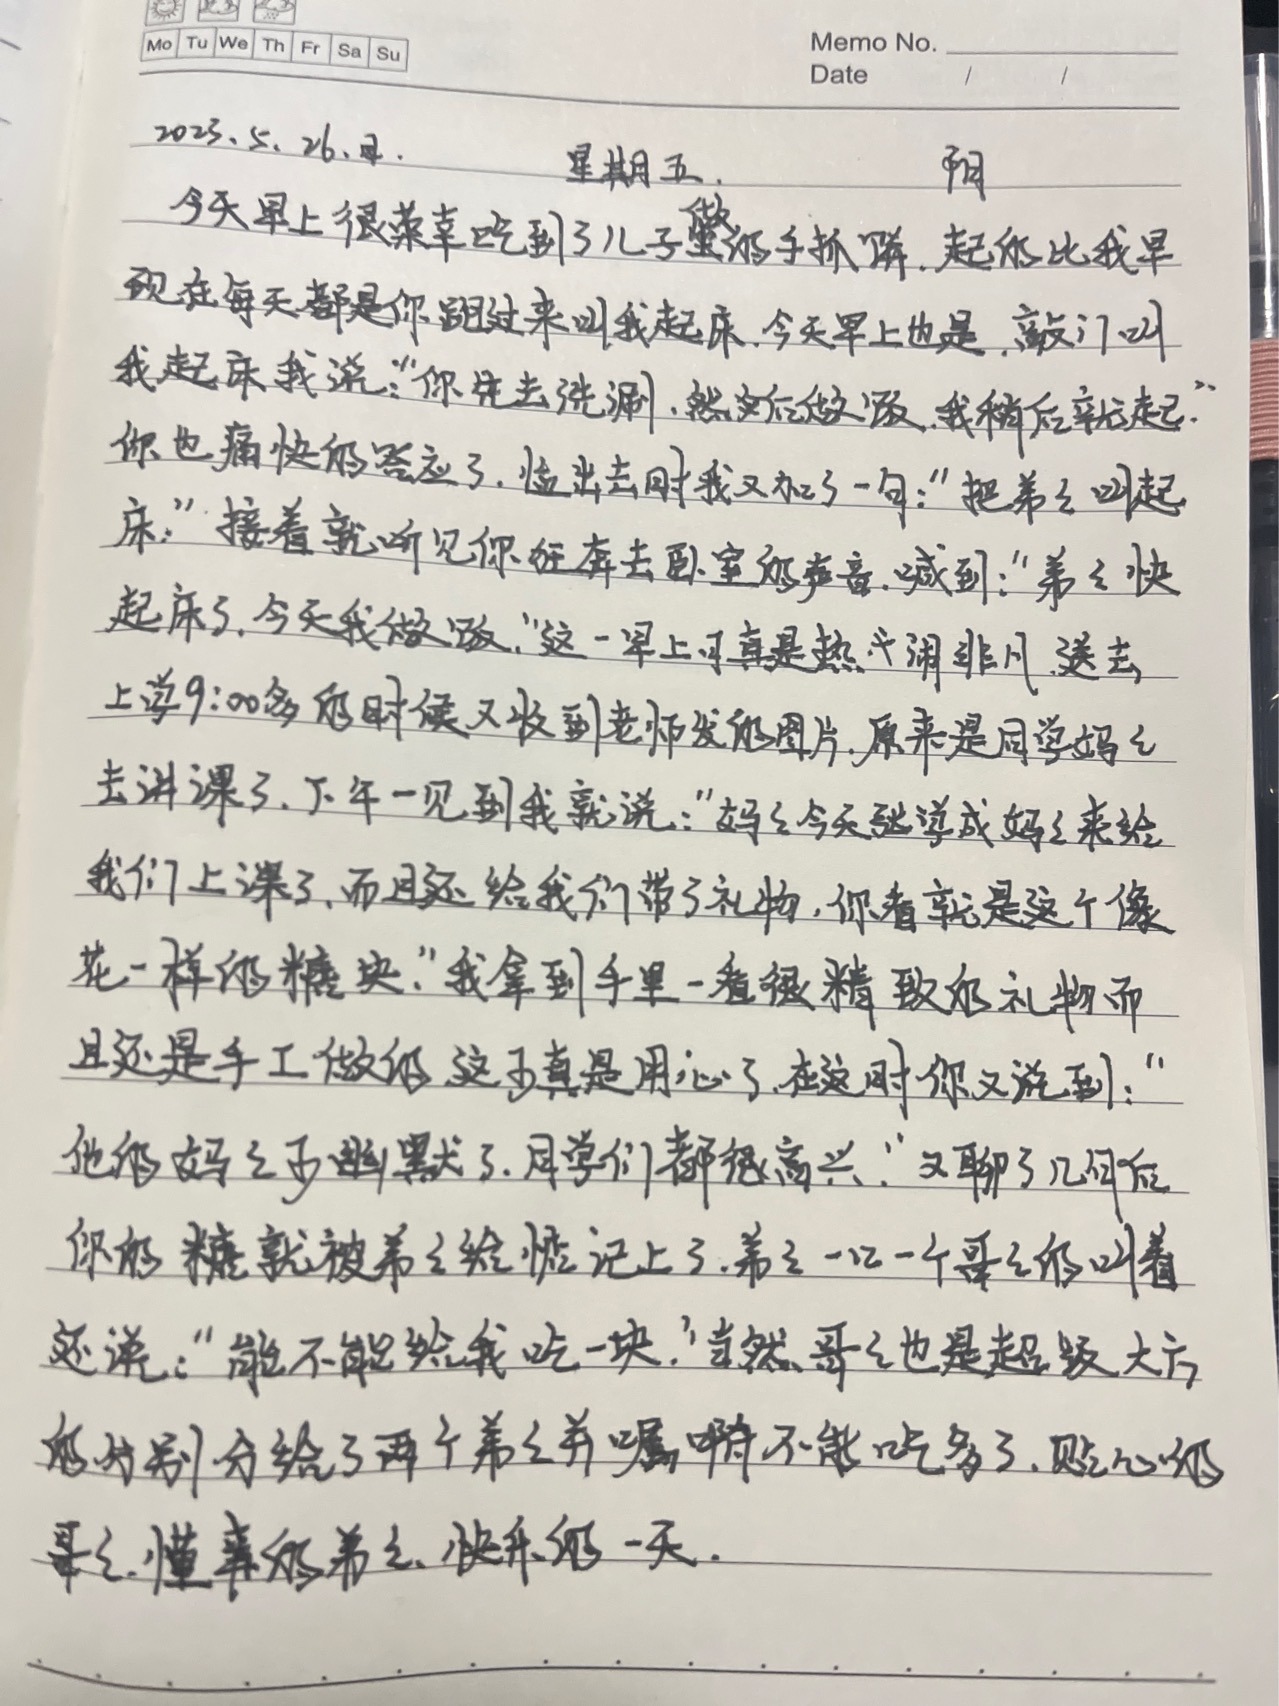 Mo Tu We Th Fr Sa Su
Memo No.
Date / /
2023.5.26.日. 星期五. 阴
今天早上很荣幸吃到了儿子做的手抓饼.起的比我早
现在每天都是你跑过来叫我起床.今天早上也是.敲门叫
我起床我说:“你先去洗涮.然后做饭.我稍后就起.”
你也痛快的答应了.临出去时我又加了一句:“把弟弟叫起
床.”接着就听见你狂奔去卧室的声音.喊到:“弟弟快
起床了.今天我做饭.”这一早上可真是热闹非凡.送去
上学9:00多的时候又收到老师发的图片.原来是同学妈妈
去讲课了.下午一见到我就说:“妈妈今天张学成妈妈来给
我们上课了.而且还给我们带了礼物.你看就是这个像
花一样的糖块.”我拿到手里一看很精致的礼物而
且还是手工做的.这可真是用心了.在这时你又说到:“
他的妈妈可幽默了.同学们都很高兴.”又聊了几句后
你的糖就被弟弟给惦记上了.弟弟一口一个哥哥的叫着
还说:“能不能给我吃一块.”当然哥哥也是超级大方
的分别分给了两个弟弟并嘱咐不能吃多了.贴心的
哥哥.懂事的弟弟.快乐的一天.